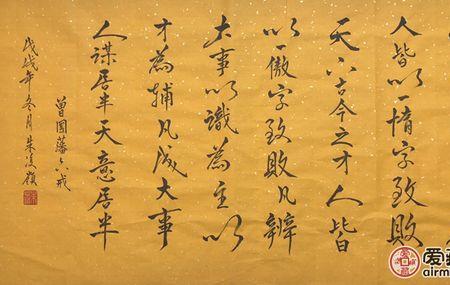 人皆以一惰字致敗
天下古今之才人皆
以一傲字致敗凡辦
大事以識為主以
才為輔凡成大事
人謀居半天意居半
曾國藩六戒
戊戌年冬月朱
爱藏
airm